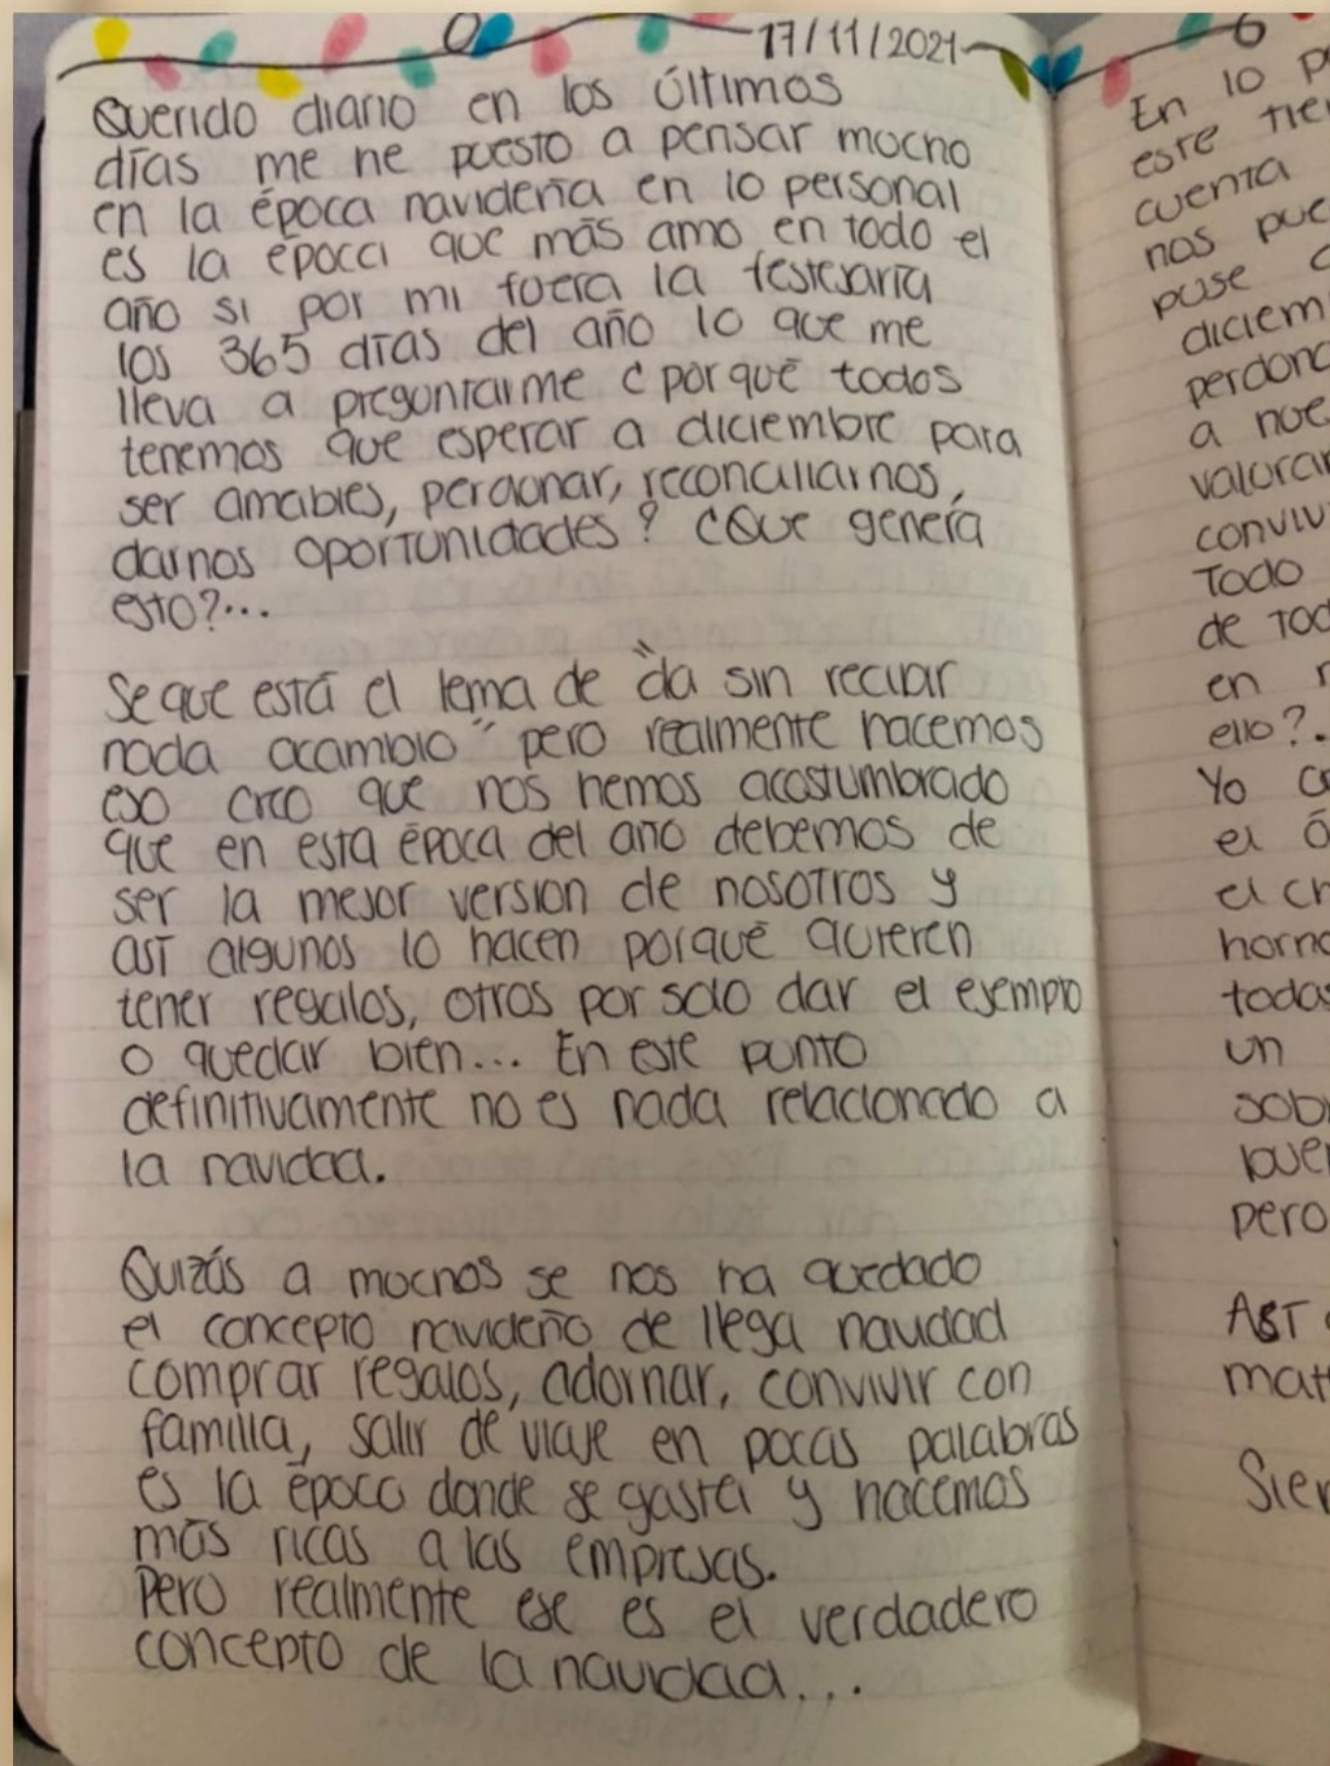 17/11/2021
Querido diario en los últimos
días me he puesto a pensar mucho
en la época navideña en lo personal
es la época que más amo en todo el
año si por mi fuera la festejaría
los 365 días del año lo que me
lleva a preguntarme ¿por qué todos
tenemos que esperar a diciembre para
ser amables, perdonar, reconciliarnos,
darnos oportunidades? ¿Que genera
esto?...
Se que está el lema de "da sin recibir
nada acambio" pero realmente hacemos
eso creo que nos hemos acostumbrado
que en esta época del año debemos de
ser la mejor version de nosotros y
así algunos lo hacen porqué quieren
tener regalos, otros por solo dar el ejemplo
o quedar bien... En este punto
definitivamente no es nada relacionado a
la navidad.
Quizás a muchos se nos ha quedado
el concepto navideño de llega navidad
comprar regalos, adornar, convivir con
familia, salir de viaje en pocas palabras
es la época donde se gasta y hacemos
más ricas a las empresas.
Pero realmente ese es el verdadero
concepto de la navidad...
En lo
este
cuenta
nos
puse
diciem
perdona
a nue
valorar
conviv
Todo
de tod
en
ello?.
Yo
el
el ch
horno
todas
un
sob
bue
pero
Así
mat
Sier